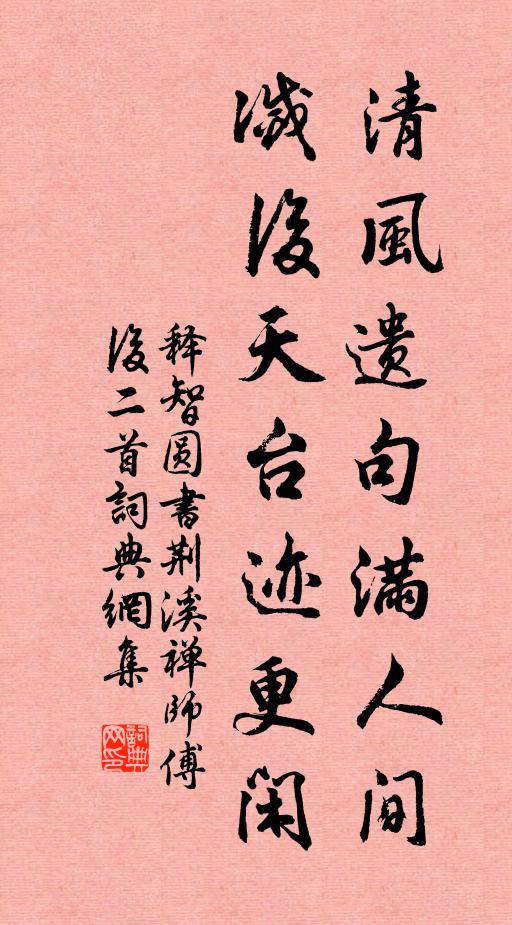 清風遺句滿人间
滅後天台迹更闲
释智圆書荆溪禅師傅
後二首詞典網集
詞典网印